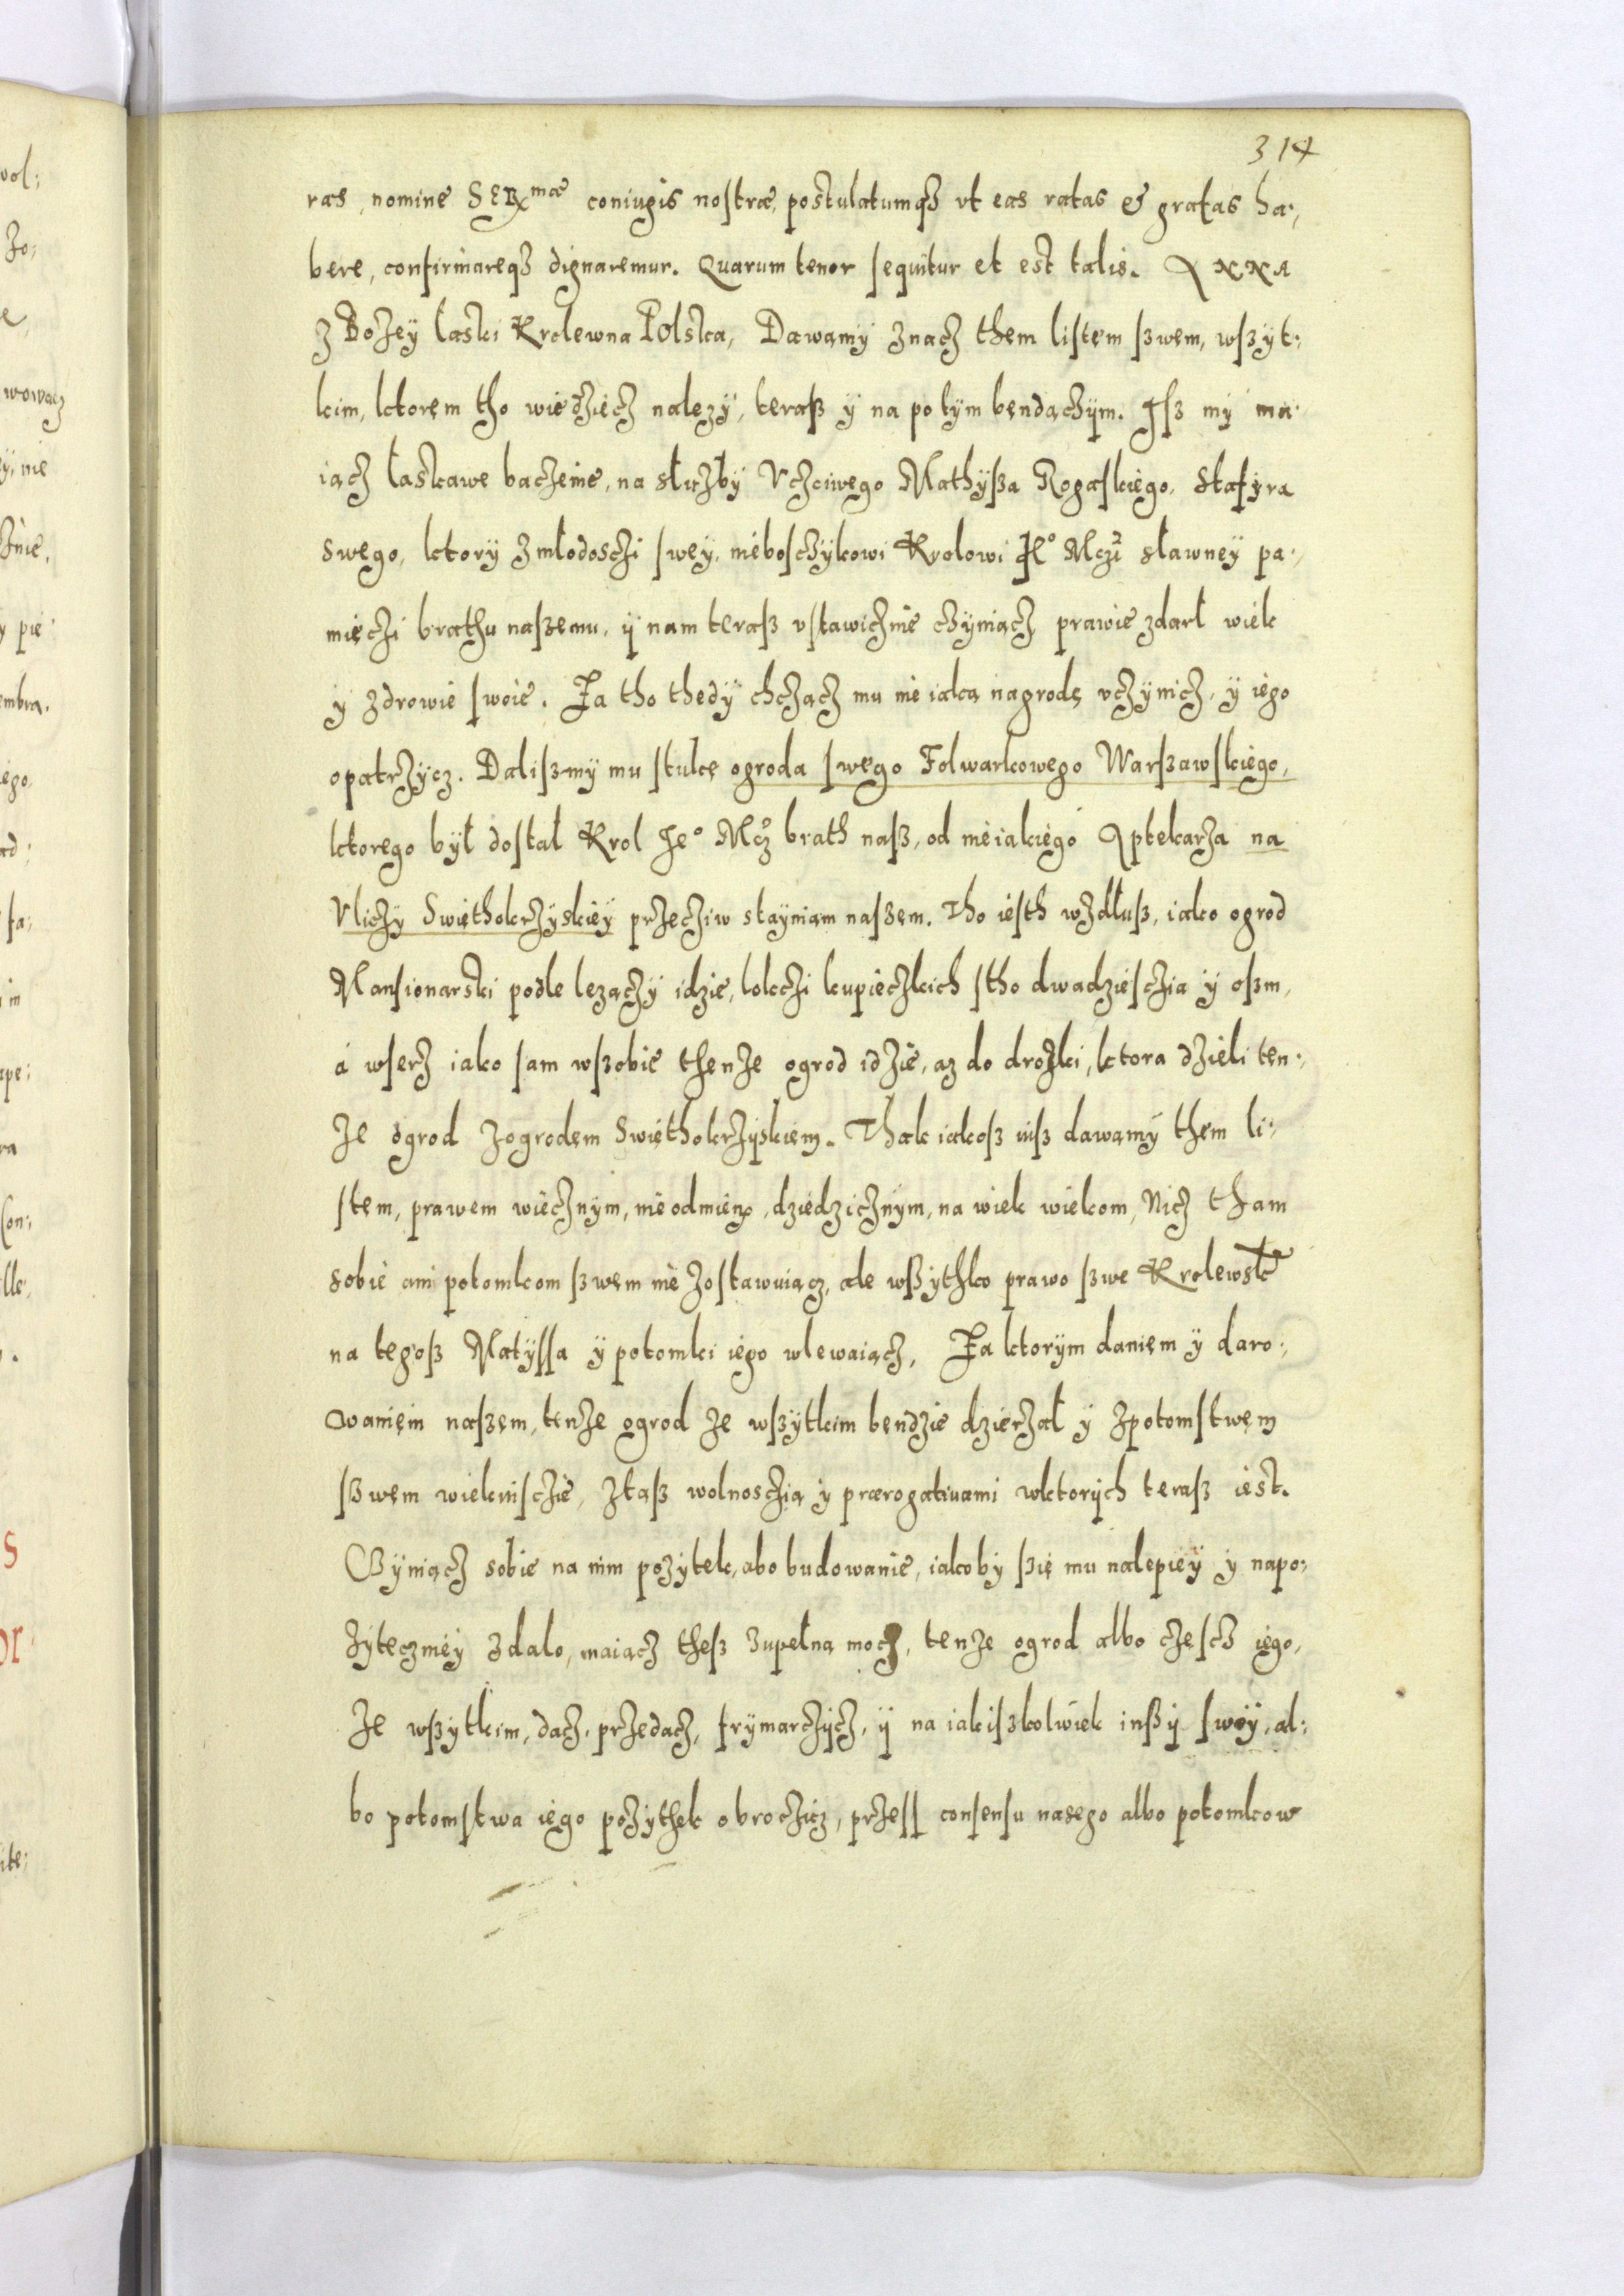 314
ras, nomine SERmæ coniugis nostræ, postulatumqȝ vt eas ratas & gratas ha:
bere, confirmareqȝ dignaremur. Quarum tenor sequitur et est talis. ANNA
z Bozeÿ łaski Krolewna Polska, Dawamÿ znacz them listem swem, wszÿt:
kim, ktorem tho wiedziecz nalezÿ, teraß ÿ na potÿm bendączÿm. Iß mÿ ma:
iącz łaskawe baczenie, na służbÿ Vczciwego Mathÿßa Rogaskiego, Stafÿra
swego, ktorÿ z młodosczi sweÿ, nieboszczÿkowi Krolowi Ieº Mczi sławneÿ pa:
mięczi brathu naszemu, ÿ nam teraß vstawicznie czÿniącz, prawie zdarł wiek
ÿ zdrowie swoie. Za tho thedÿ chcząc mu nieiaką nagrodę vczÿnicz, ÿ iego
opatrzÿcz. Daliszmÿ mu stukę ogroda swego Folwarkowego Warszawskiego,
ktorego bÿł dostał Krol Ieº Mcz brath naß, od nieiakiego Aptekarza na
Vliczÿ Swiętokrzÿskieÿ przecziw staÿniam naszem. Tho iesth wzdłuß, iako ogrod
Mansionarski podle lezączÿ idzie, łokczi kupieczkich stho dwadziesczia ÿ oßm,
á wserz iako sam wszobie thenze ogrod idzie, az do drozki, ktora dzieli ten:
ze ogrod zogrodem Swiętokrzÿskiem. Thak iakoß iuß dawamÿ them li:
stem, prawem wiecznÿm, nieodmienÿm, dziedzicznÿm, na wiek wiekom, Nicz tham
sobie ani potomkom swem nie zostawuiącz, ale wßÿthko prawo swe Krolewskie
na tegoß Matÿssa ÿ potomki iego wlewaiącz, Za ktorÿm daniem ÿ daro:
waniem naszem, tenze ogrod ze wszÿtkim bendzie dzierzał ÿ zpotomstwem
swem wiekuisczie, ztaß wolnosczią ÿ prærogatiuami wktorÿch teraß iest.
Czÿniącz sobie na nim pozÿtek, abo budowanie, iakobÿ się mu nalepieÿ ÿ napo:
zÿtecznieÿ zdalo, maiącz theß zupełną mocz, tenze ogrod albo częscz iego,
ze wszÿtkim, dacz, przedacz, frÿmarczÿcz, ÿ na iakiszkolwiek inßÿ swoÿ, al:
bo potomstwa iego pozÿthek obroczicz, przess consensu nasego albo potomkow